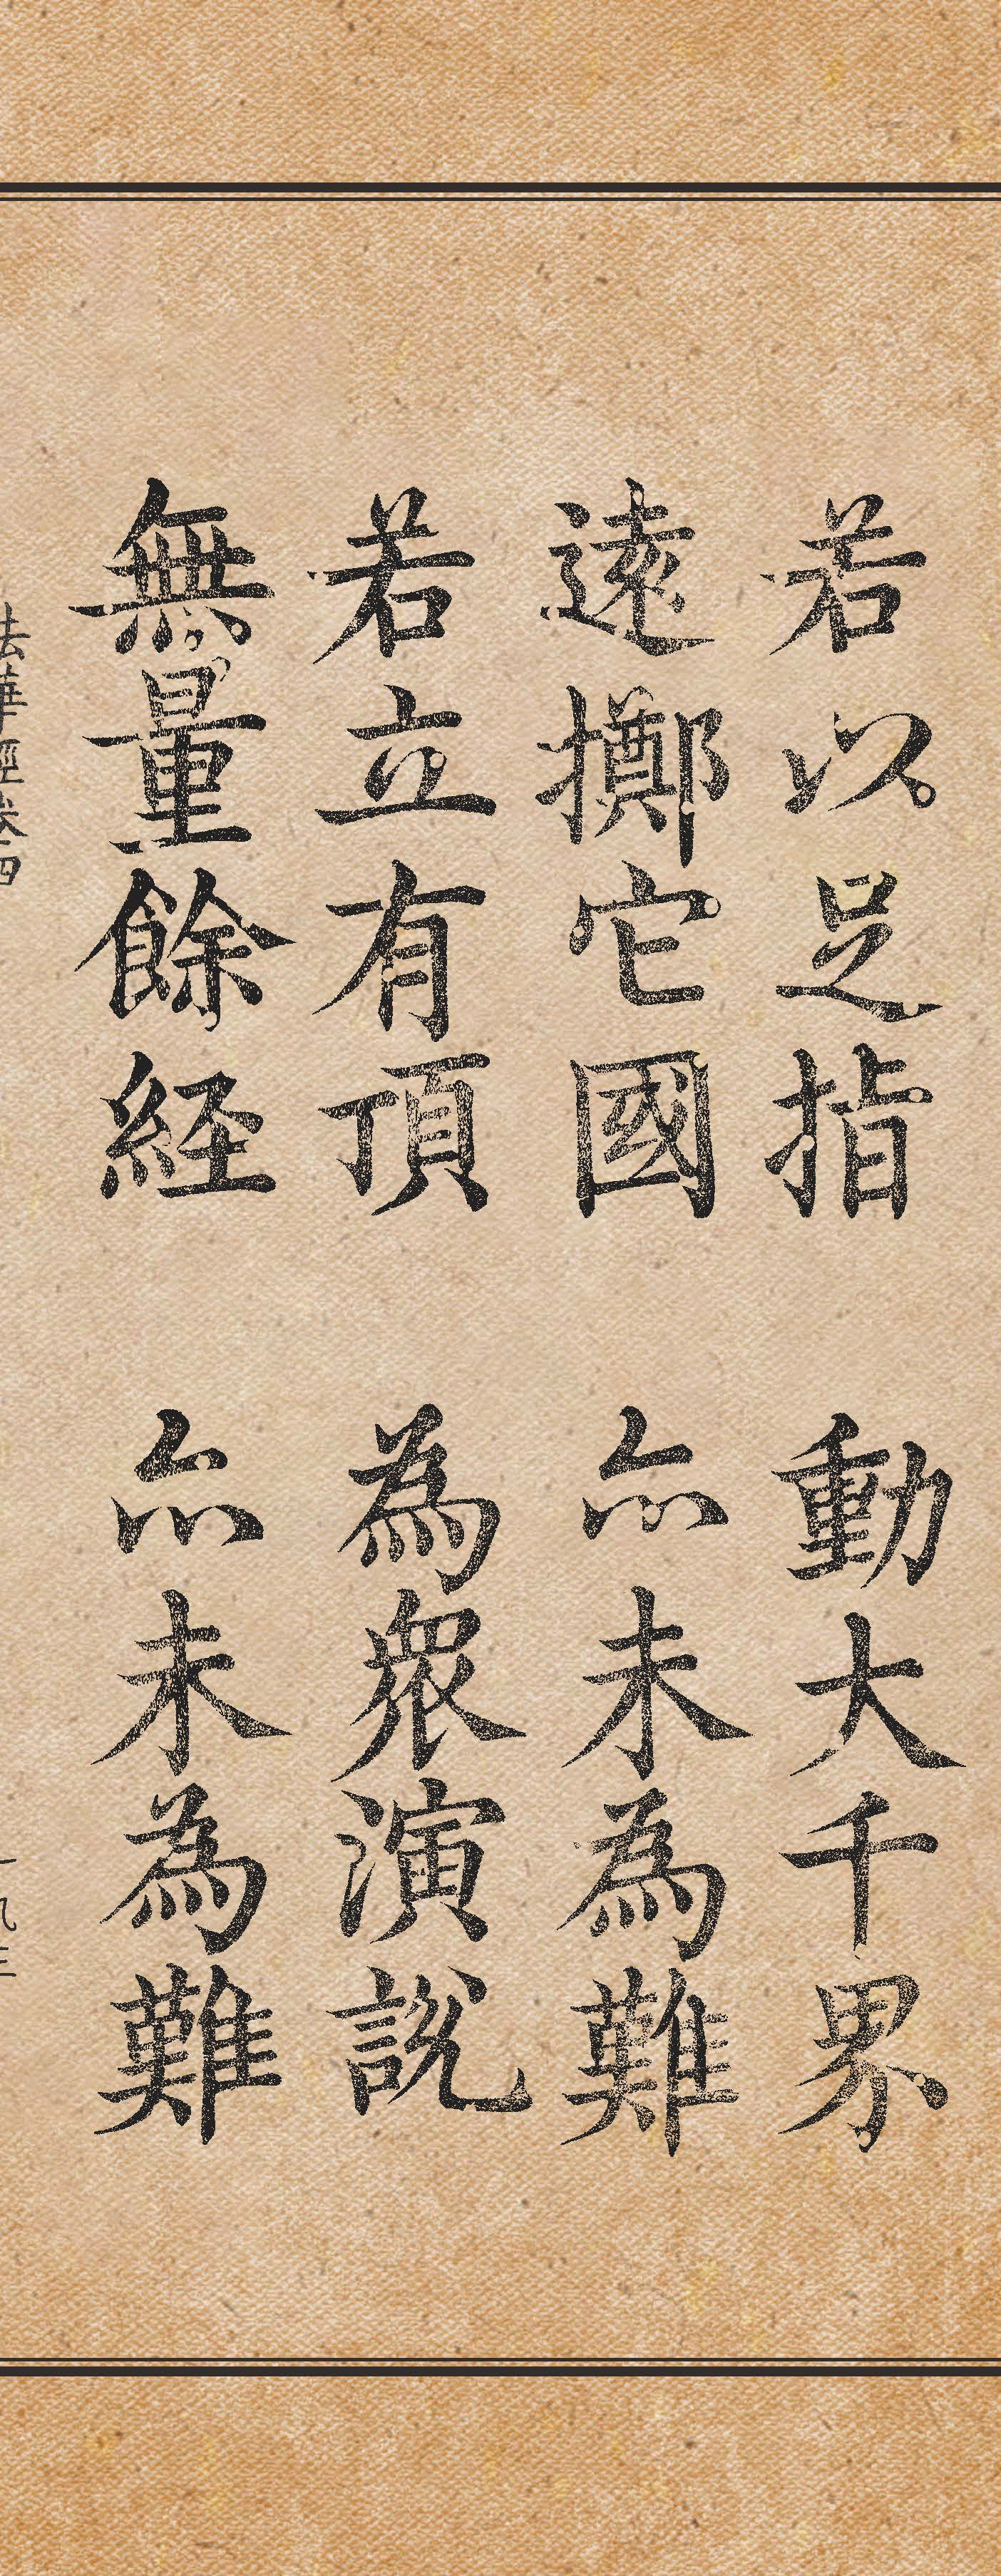 若以足指　動大千界
遠擲它國　亦未為難
若立有頂　為衆演說
無量餘経　亦未為難
法華經卷四　一九三